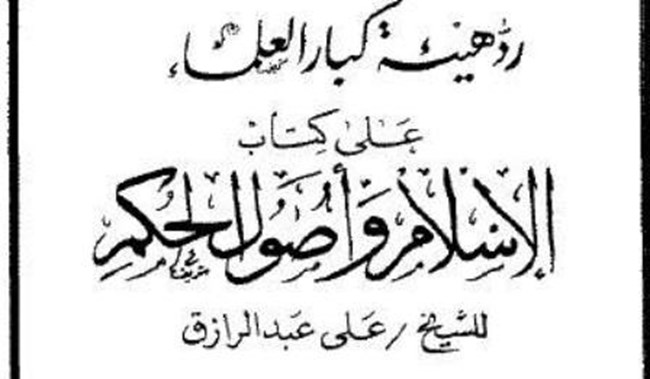 ردّ هيئة كبار العلماء
على كتاب
الإسلام وأصول الحكم
للشيخ / على عبد الرازق